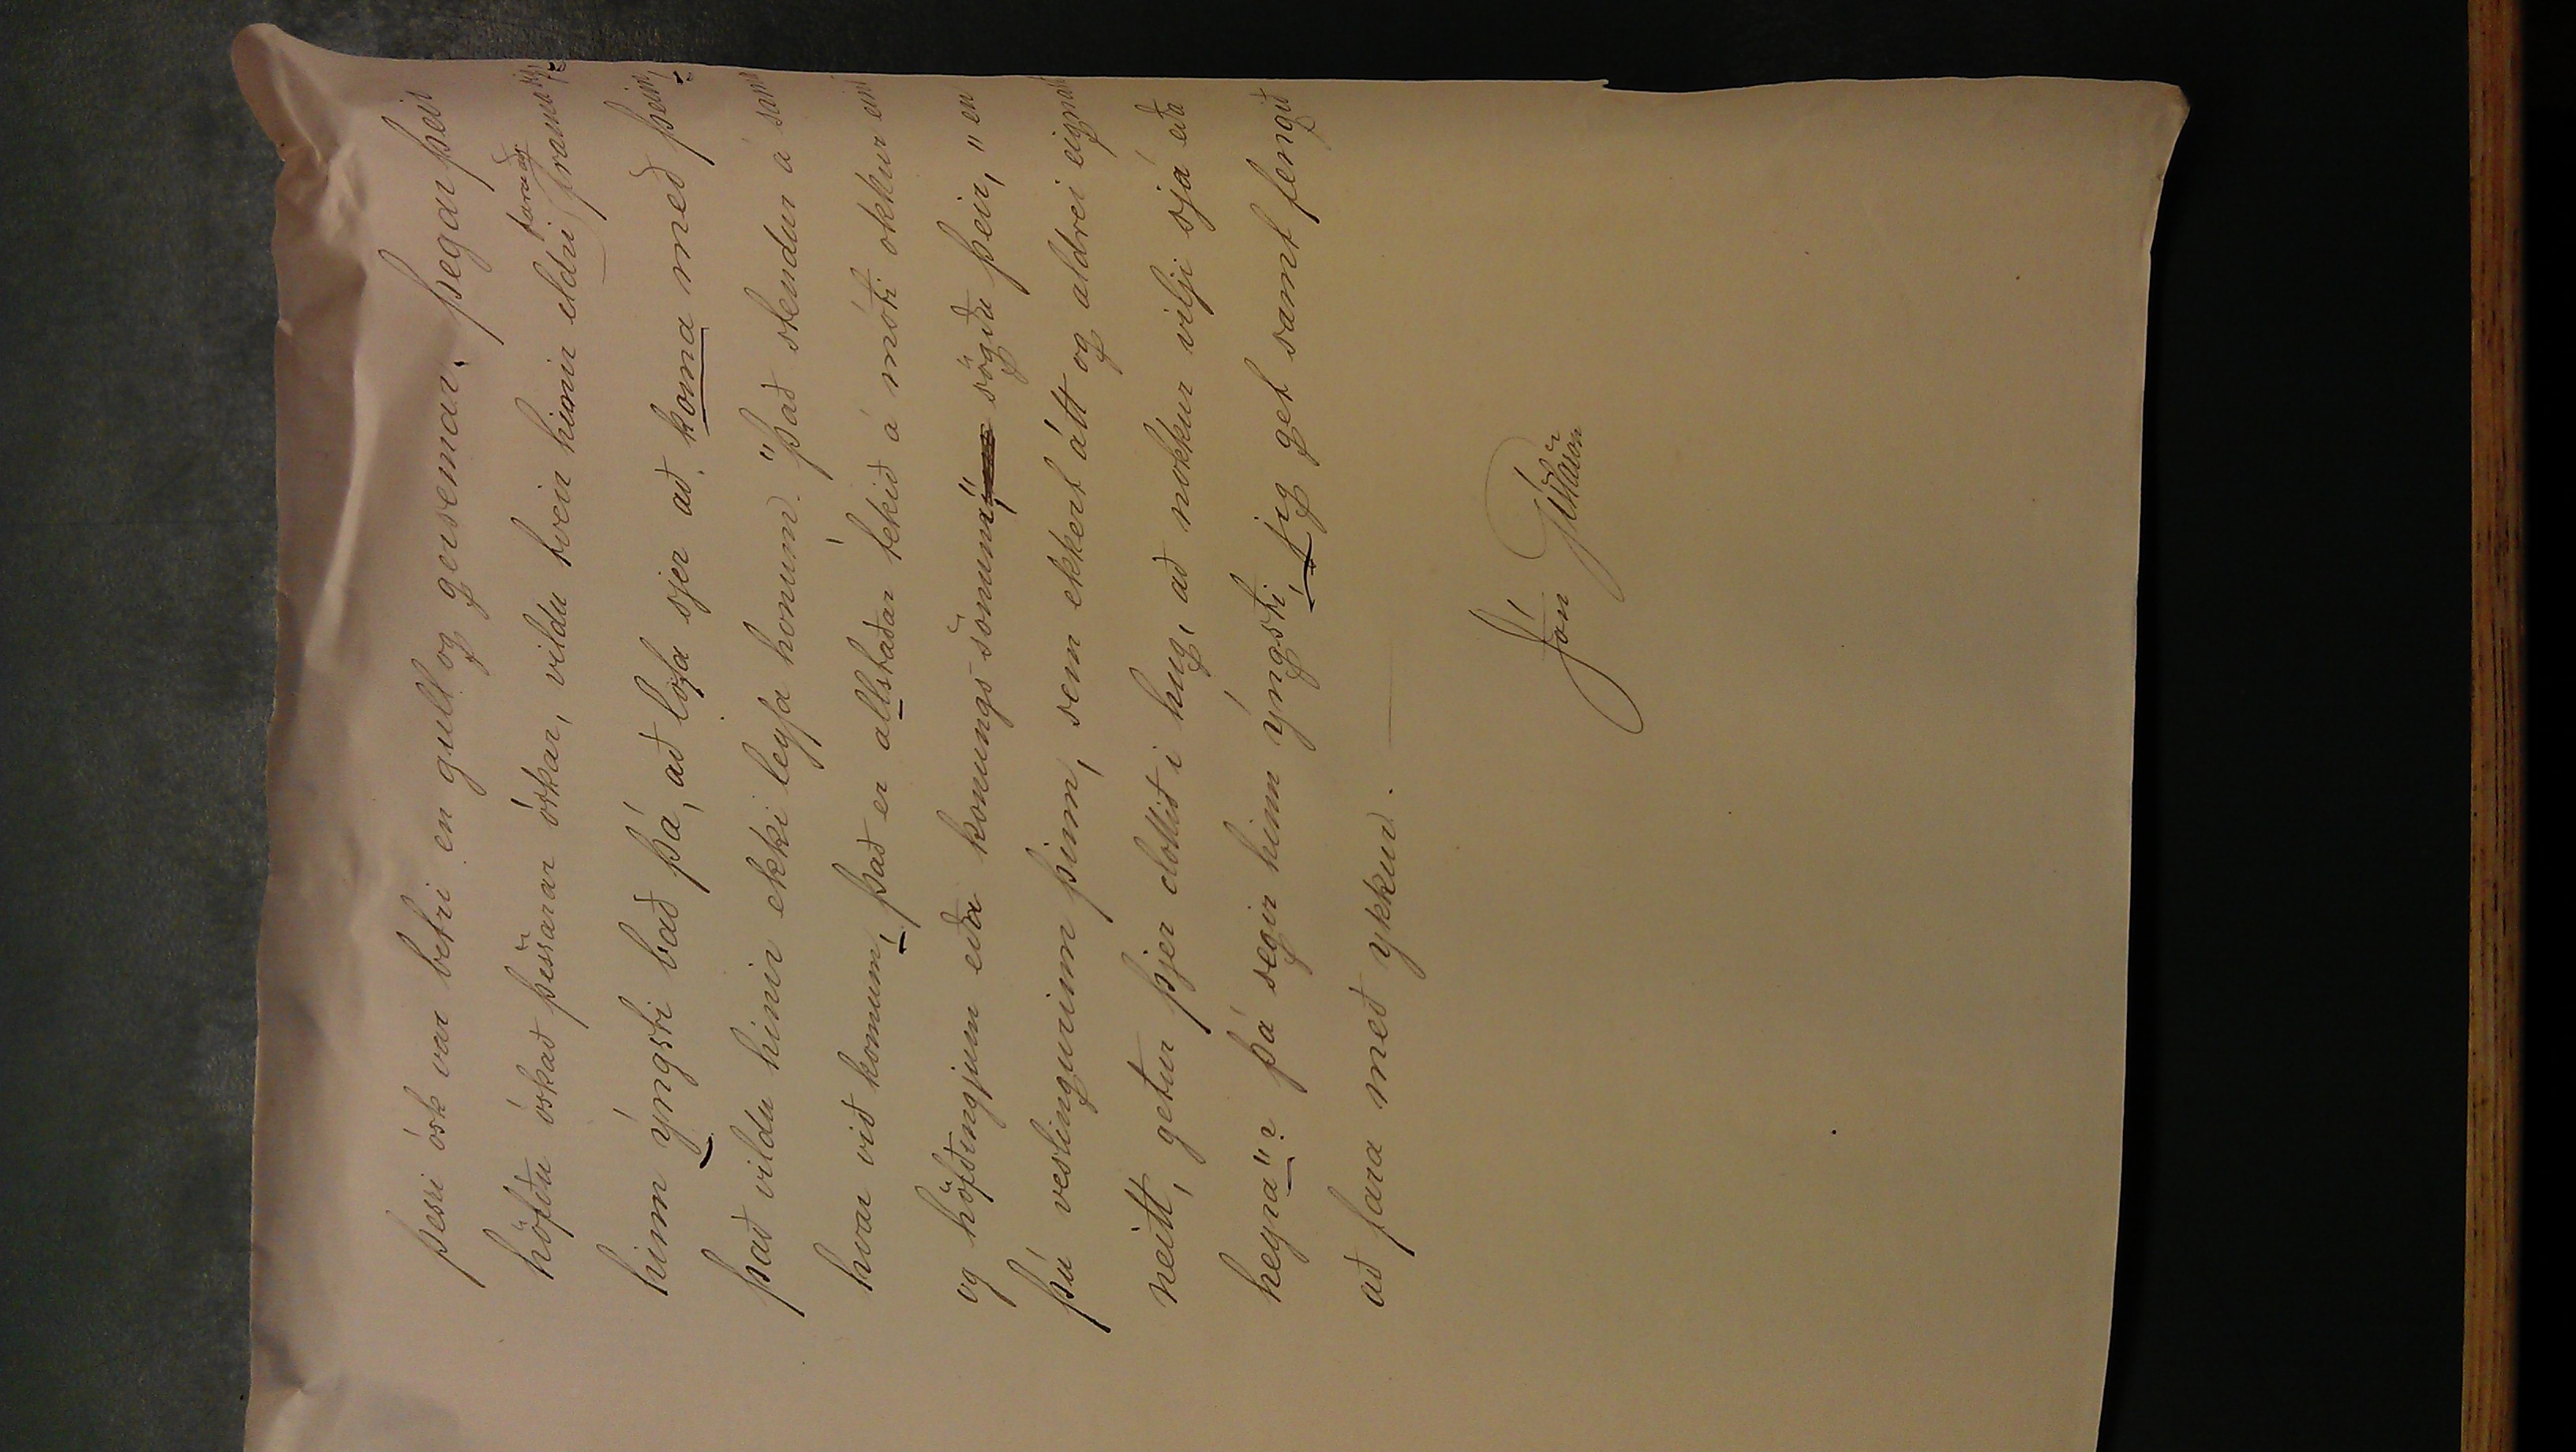 þessi ósk var betri en gull og gersemar. Þegar þeir
höfðu óskað þessarar óskar, vildu tveir hinir eldri fara að
hinn ýngsti bað þá, að lofa sjer að koma með þeim,
það vildu hinir ekki leyfa honum. "Það stendur á sam
hvar við komum, það er allstaðar tekið á móti okkur eins
og höfðingjum eða konungs sonum", sögðu þeir, "en
þú veslingurinn þinn, sem ekkert átt og aldrei eignast
neitt, getur þjer dottið í hug, að nokkur vilji sjá eða
heyra"? Þá segir hinn ýngsti, jeg get samt fengið
að fara með ykkur.
Jón